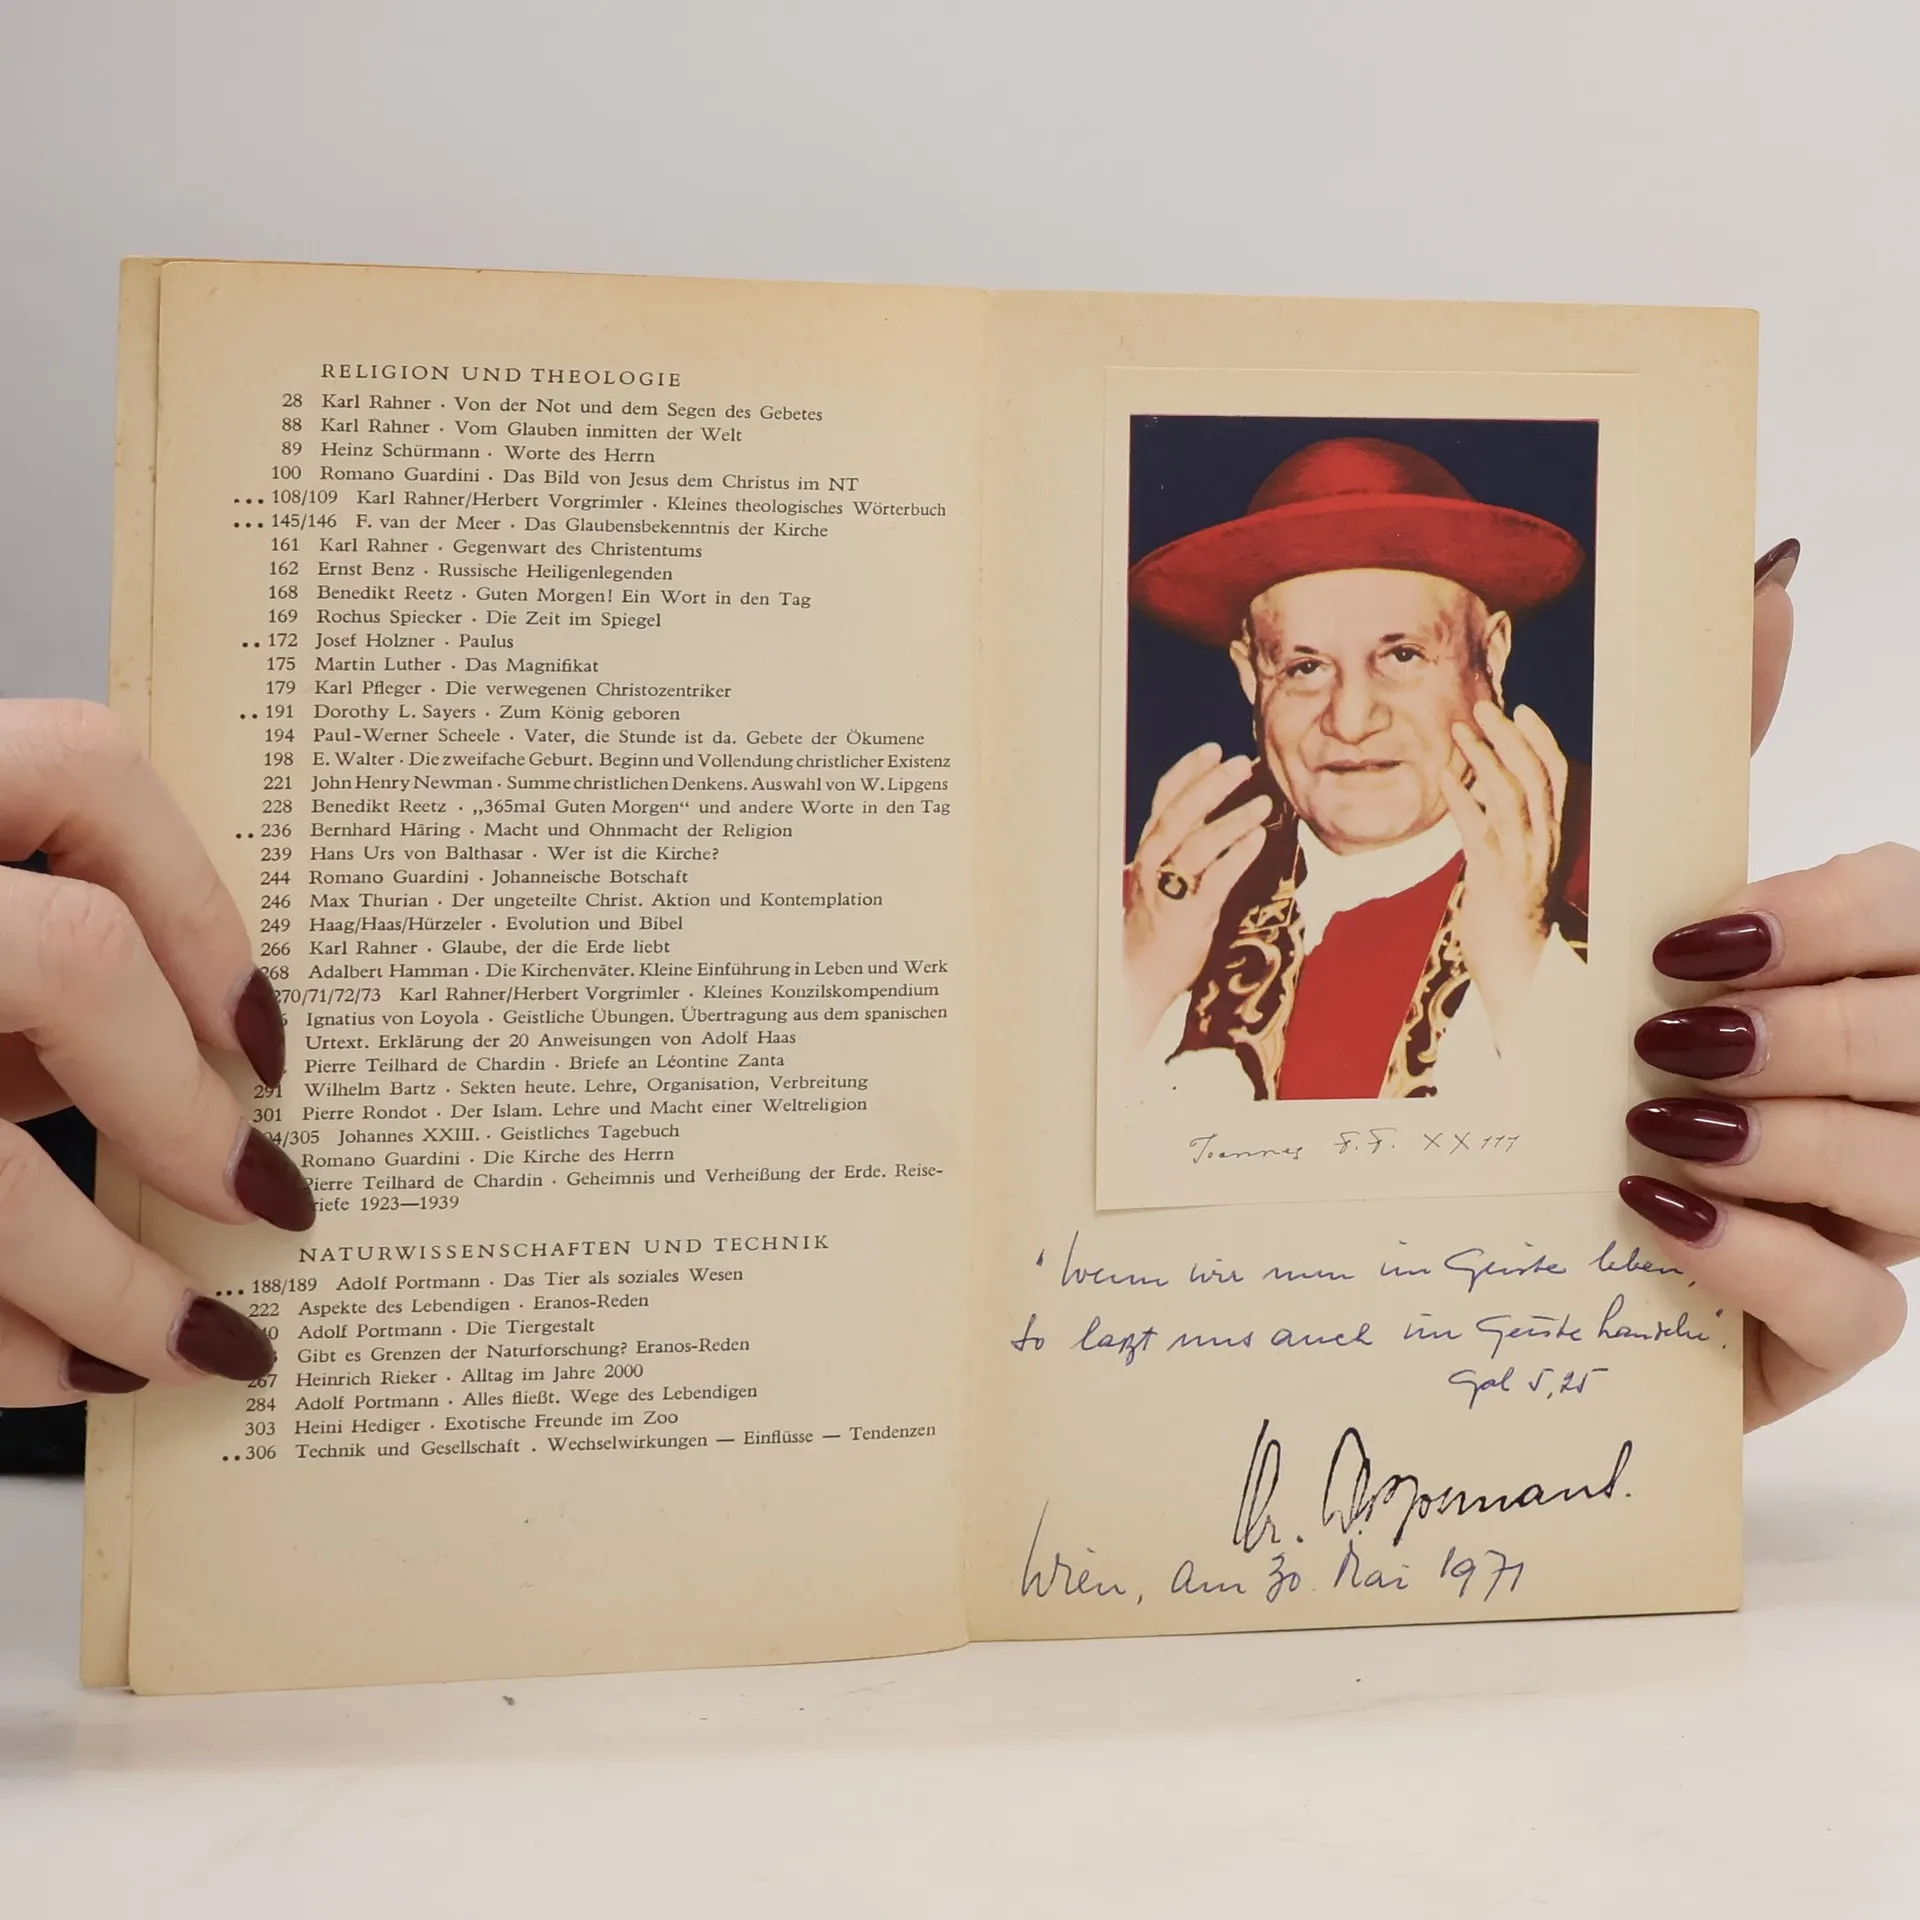 RELIGION UND THEOLOGIE
28 Karl Rahner · Von der Not und dem Segen des Gebetes
88 Karl Rahner · Vom Glauben inmitten der Welt
89 Heinz Schürmann · Worte des Herrn
100 Romano Guardini · Das Bild von Jesus dem Christus im NT
•••108/109 Karl Rahner/Herbert Vorgrimler · Kleines theologisches Wörterbuch
•••145/146 F. van der Meer · Das Glaubensbekenntnis der Kirche
161 Karl Rahner · Gegenwart des Christentums
162 Ernst Benz · Russische Heiligenlegenden
168 Benedikt Reetz · Guten Morgen! Ein Wort in den Tag
169 Rochus Spiecker · Die Zeit im Spiegel
••172 Josef Holzner · Paulus
175 Martin Luther · Das Magnifikat
179 Karl Pfleger · Die verwegenen Christozentriker
••191 Dorothy L. Sayers · Zum König geboren
194 Paul-Werner Scheele · Vater, die Stunde ist da. Gebete der Ökumene
198 E. Walter · Die zweifache Geburt. Beginn und Vollendung christlicher Existenz
221 John Henry Newman · Summe christlichen Denkens. Auswahl von W. Lipgens
228 Benedikt Reetz · „365mal Guten Morgen“ und andere Worte in den Tag
••236 Bernhard Häring · Macht und Ohnmacht der Religion
239 Hans Urs von Balthasar · Wer ist die Kirche?
244 Romano Guardini · Johanneische Botschaft
246 Max Thurian · Der ungeteilte Christ. Aktion und Kontemplation
249 Haag/Haas/Hürzeler · Evolution und Bibel
266 Karl Rahner · Glaube, der die Erde liebt
268 Adalbert Hamman · Die Kirchenväter. Kleine Einführung in Leben und Werk
270/71/72/73 Karl Rahner/Herbert Vorgrimler · Kleines Konzilskompendium
Ignatius von Loyola · Geistliche Übungen. Übertragung aus dem spanischen
Urtext. Erklärung der 20 Anweisungen von Adolf Haas
Pierre Teilhard de Chardin · Briefe an Léontine Zanta
291 Wilhelm Bartz · Sekten heute. Lehre, Organisation, Verbreitung
301 Pierre Rondot · Der Islam. Lehre und Macht einer Weltreligion
04/305 Johannes XXIII. · Geistliches Tagebuch
Romano Guardini · Die Kirche des Herrn
Pierre Teilhard de Chardin · Geheimnis und Verheißung der Erde. Reise-
riefe 1923—1939
NATURWISSENSCHAFTEN UND TECHNIK
•••188/189 Adolf Portmann · Das Tier als soziales Wesen
222 Aspekte des Lebendigen · Eranos-Reden
40 Adolf Portmann · Die Tiergestalt
Gibt es Grenzen der Naturforschung? Eranos-Reden
267 Heinrich Rieker · Alltag im Jahre 2000
284 Adolf Portmann · Alles fließt. Wege des Lebendigen
303 Heini Hediger · Exotische Freunde im Zoo
••306 Technik und Gesellschaft . Wechselwirkungen — Einflüsse — Tendenzen
Joannes XXIII
"Wenn wir nun im Geiste leben,
so laßt uns auch im Geiste handeln".
Gal 5,25
Wien, am 30. Mai 1971